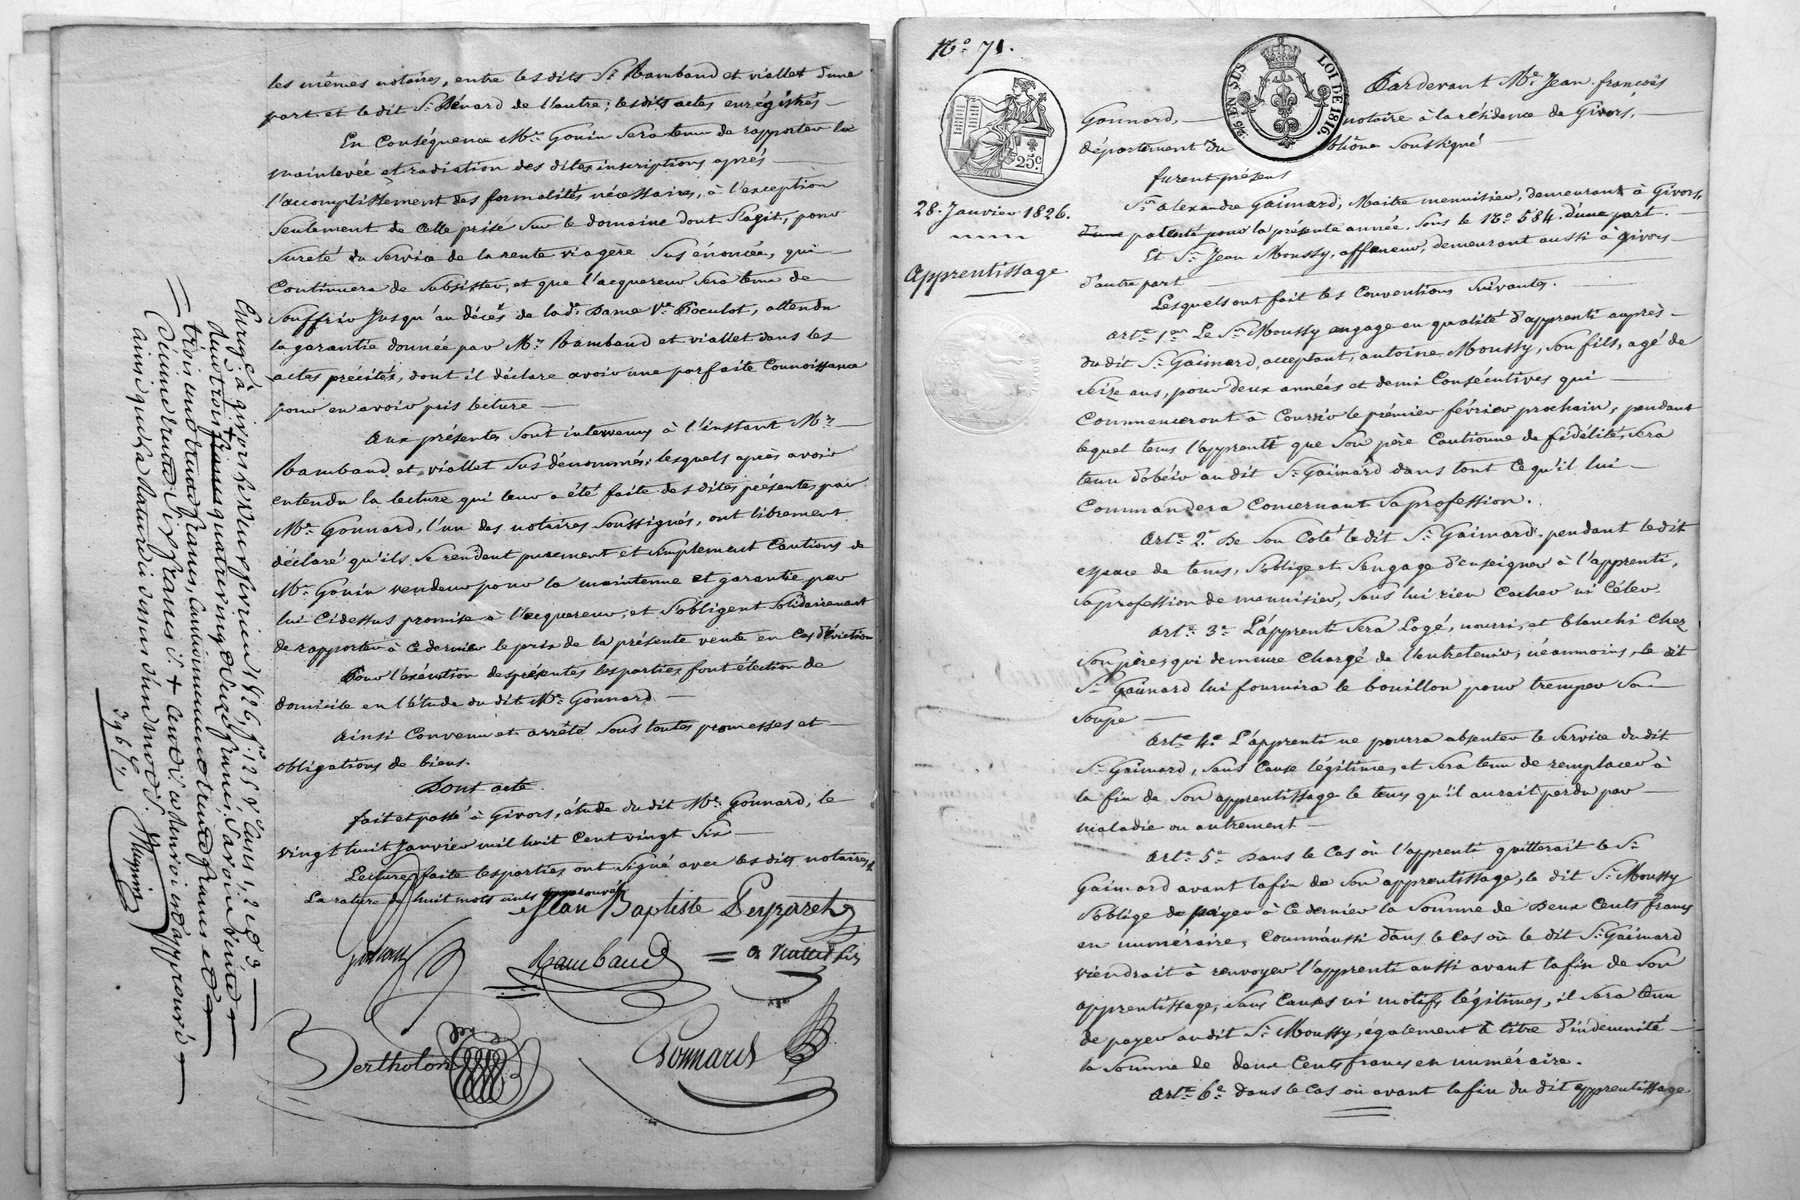 les mêmes notaires, entre les dits Sr. Rambaud et viallet d'une
part. et le dit Sr. Bénard de l'autre; les dits actes enrégistrés.
En Conséquence Mr. Gonin sera tenu de rapporter la
mainlevée et radiation des dites inscriptions après
l'accomplissement des formalités nécessaires, à l'exception
Seulement de celle prise sur le domaine dont s'agit, pour
sureté du service de la rente viagère sus énoncée, qui
Continuera de subsister, et que l'acquereur sera tenu de
souffrir jusqu'au décès de la de. Dame Ve. Poculot, attendu
la garantie donnée par Mrs. Rambaud et viallet dans les
actes précités, dont il déclare avoir une parfaite Connoissance
pour en avoir pris lecture
Aux présentes sont intervenus à l'instant Mrs.
Rambaud et viallet sus dénommés; lesquels après avoir
entendu la lecture qui leur a été faite des dites présentes par
Me. Gonnard, l'un des notaires soussignés, ont librement
déclaré qu'ils se rendent purement et simplement Cautions de
Mr. Gonin vendeur pour la maintenue et garantie par
lui Cidessus promise à l'acquereur, et s'obligent solidairement
de rapporter à ce dernier le prix de la présente vente en Cas d'éviction
Pour l'exécution des présentes les parties font élection de
domicile en l'étude du dit Me. Gonnard.
Ainsi Convenu et arrêté sous toutes promesses et
obligations de biens.
Dont acte.
fait et passé à Givors, étude du dit Me. Gonnard, le
vingt huit Janvier mil huit cent vingt six
Lecture faite les parties ont signé avec les dits notaires,
La rature de huit mots nuls approuvée
Jean Baptiste Peyzaret
Rambaud
Bertholon
Gonnard
Enregé à givors le deux fevrier 1826, fo. 125 vo. Cases 1, 2 et 3
trois cent trente francs,
ainsi que la rature
396
No. 71.
25 c
28. Janvier 1826.
Apprentissage
¼ EN SUS LOI DE 1816.
Pardevant Me. Jean. françois
Gonnard, notaire à la résidence de Givors,
département du Rhône soussigné
furent présens
Sr. alexandre Gaimard, Maitre menuisier, demeurant à Givors,
patenté pour la présente année, sous le No. 584. d'une part.
Et Sr. Jean Moussy, affaneur, demeurant aussi à Givors
d'autre part
Lesquels ont fait les Conventions suivantes.
Arte. 1er. Le Sr. Moussy engage en qualité d'apprenti auprès
du dit Sr. Gaimard, acceptant, antoine Moussy, son fils, agé de
seize ans, pour deux années et demi Consécutives qui
Commenceront à Courrir le prémier février prochain, pendant
lequel tems l'apprenti que son père Cautionne de fidélité, sera
tenu d'obéir au dit Sr. Gaimard dans tout ce qu'il lui
Commandera Concernant sa profession.
Arte. 2e. De son Coté le dit Sr. Gaimard, pendant le dit
espace de tems, s'oblige et s'engage d'enseigner à l'apprenti,
sa profession de menuisier, sans lui rien cacher ni Céler.
Arte. 3e. L'apprenti sera Logé, nourri, et blanchi chez
son père, qui demeure Chargé de l'entretenir, néanmoins, le dit
Sr. Gaimard lui fournira le bouillon pour tremper sa
soupe
Arte. 4e. L'apprenti ne pourra absenter le service du dit
Sr. Gaimard, sans Cause légitime, et sera tenu de remplacer à
la fin de son apprentissage le tems qu'il aurait perdu par
maladie ou autrement
Arte. 5e. Dans le Cas où l'apprenti quitterait le Sr.
Gaimard avant la fin de son apprentissage, le dit Sr. Moussy
s'oblige de payer à ce dernier la somme de Deux Cents francs
en numéraire, Comm'aussi dans le Cas où le dit Sr. Gaimard
viendrait à renvoyer l'apprenti aussi avant la fin de son
apprentissage, sans Causes ni motifs légitimes, il sera tenu
de payer au dit Sr. Moussy, également à titre d'indemnité
la somme de deux Cents francs en numéraire.
Arte. 6e. dans le Cas où avant la fin du dit apprentissage